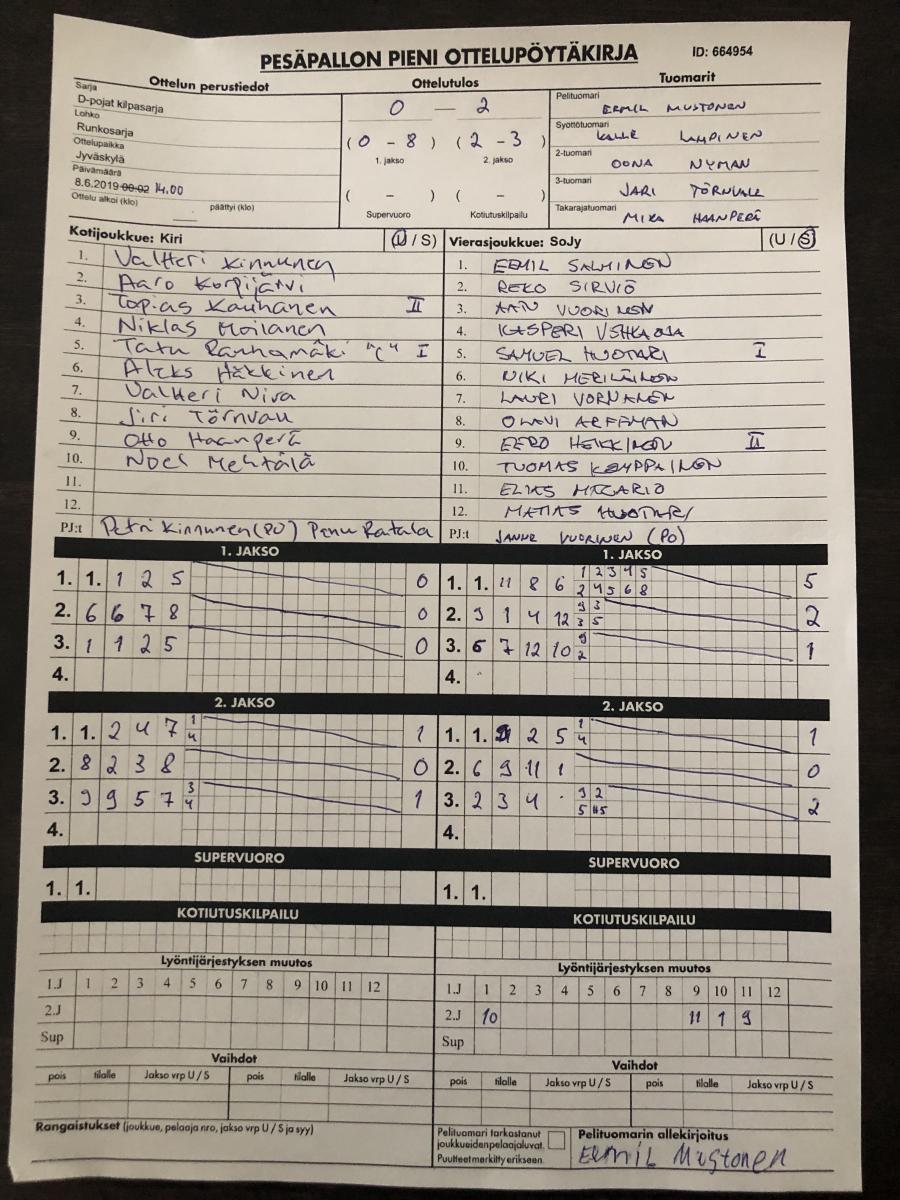 PESÄPALLON PIENI OTTELUPÖYTÄKIRJA
ID: 664954
Ottelun perustiedot
Sarja
D-pojat kilpasarja
Lohko
Runkosarja
Ottelupaikka
Jyväskylä
Päivämäärä
8.6.2019 00:02 14.00
Ottelu alkoi (klo) päättyi (klo)
Ottelutulos
0 — 2
(0 - 8) (2 - 3)
1. jakso 2. jakso
( - ) ( - )
Supervuoro Kotiutuskilpailu
Tuomarit
Pelituomari
EEMIL MUSTONEN
Syöttötuomari
KALLE LAMPINEN
2-tuomari
OONA NYMAN
3-tuomari
JARI TÖRNVALL
Takarajatuomari
MIKA HAANPERÄ
Kotijoukkue: Kiri (U / S)
1. Valtteri Kinnunen
2. Aaro Korpijärvi
3. Topias Kauhanen II
4. Niklas Moilanen
5. Tatu Rauhamäki "C" I
6. Aleks Häkkinen
7. Valtteri Niva
8. Jiri Törnvall
9. Otto Haanperä
10. Noel Mehtälä
11.
12.
PJ:t Petri Kinnunen (PO) Panu Ratala
Vierasjoukkue: SoJy (U / S)
1. EEMIL SALMINEN
2. REKO SIRVIÖ
3. VUORINEN
4. KASPERI
5. SAMUEL HUOTARI I
6. NIKI MERILÄINEN
7. LAURI VORNANEN
8. OLAVI ARFFMAN
9. EERO HEIKKINEN II
10. TUOMAS KEMPPAINEN
11. ELIAS
12. MATIAS HUOTARI
PJ:t JANNE VUORINEN (PO)
1. JAKSO
1. 1. 1 2 5 0
2. 6 6 7 8 0
3. 1 1 2 5 0
4.
1. JAKSO
1 2 3 4 5
1. 1. 11 8 6 5
2 4 5 6 8
9 3
2. 9 1 4 12 2
3 5
9
3. 6 7 12 10 1
2
4.
2. JAKSO
1
1. 1. 2 4 7 1
4
2. 8 2 3 8 0
3
3. 9 9 5 7 1
4
4.
2. JAKSO
1
1. 1. 2 5 1
4
2. 6 9 11 1 0
9 2
3. 2 3 4 2
5
4.
SUPERVUORO
1. 1.
SUPERVUORO
1. 1.
KOTIUTUSKILPAILU
KOTIUTUSKILPAILU
Lyöntijärjestyksen muutos
1.J 1 2 3 4 5 6 7 8 9 10 11 12
2.J
Sup
Lyöntijärjestyksen muutos
1.J 1 2 3 4 5 6 7 8 9 10 11 12
2.J 10 11 1 9
Sup
Vaihdot
pois tilalle Jakso vrp U / S pois tilalle Jakso vrp U / S
Vaihdot
pois tilalle Jakso vrp U / S pois tilalle Jakso vrp U / S
Rangaistukset (joukkue, pelaaja nro, jakso vrp U / S ja syy)
Pelituomari tarkastanut
joukkueidenpelaajaluvat.
Puutteet merkitty erikseen.
Pelituomarin allekirjoitus
Eemil Mustonen